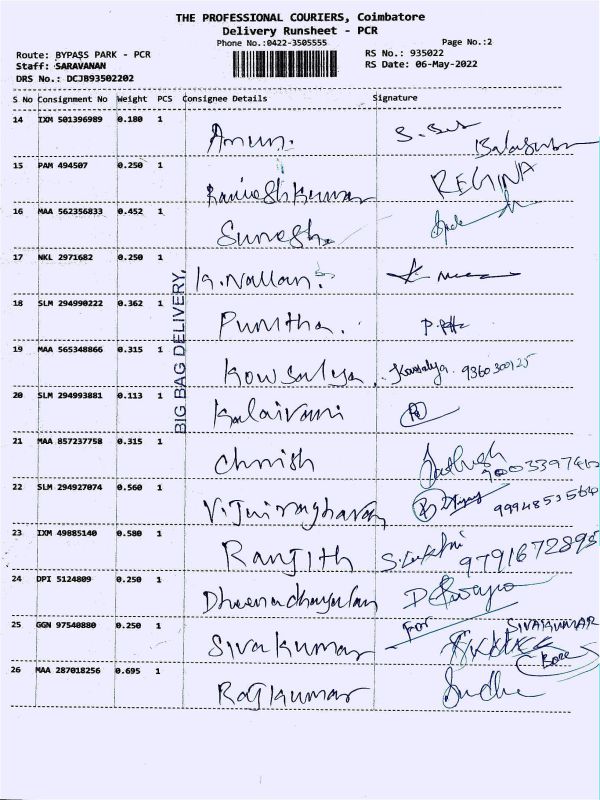 THE PROFESSIONAL COURIERS, Coimbatore
Delivery Runsheet - PCR
Phone No.:0422-3505555
Page No.:2
Route: BYPASS PARK - PCR
RS No.: 935022
Staff: SARAVANAN
RS Date: 06-May-2022
DRS No.: DCJB93502202
S No Consignment No Weight PCS Consignee Details Signature
14 IXM 501396989 0.180 1 Arnun.
15 PAM 494507 0.250 1 Ramesh kumar REGINA
16 MAA 562356833 0.452 1 Suresh
17 NKL 2971682 0.250 1 K. Nallan.
18 SLM 294990222 0.362 1 Punitha.
19 MAA 565348866 0.315 1 Kowsalya. Kowsalya
20 SLM 294993881 0.113 1 Kalaivani
21 MAA 857237758 0.315 1 Chnish Sathish
22 SLM 294927074 0.560 1 V. Jniraghavan
23 IXM 49885140 0.580 1 Ranjith 9791672895
24 DPI 5124809 0.250 1 Dheenadhayalan
25 GGN 97540880 0.250 1 Sivakumar For SIVAKUMAR
26 MAA 287018256 0.695 1 Rajkumar Sudha
BIG BAG DELIVERY,